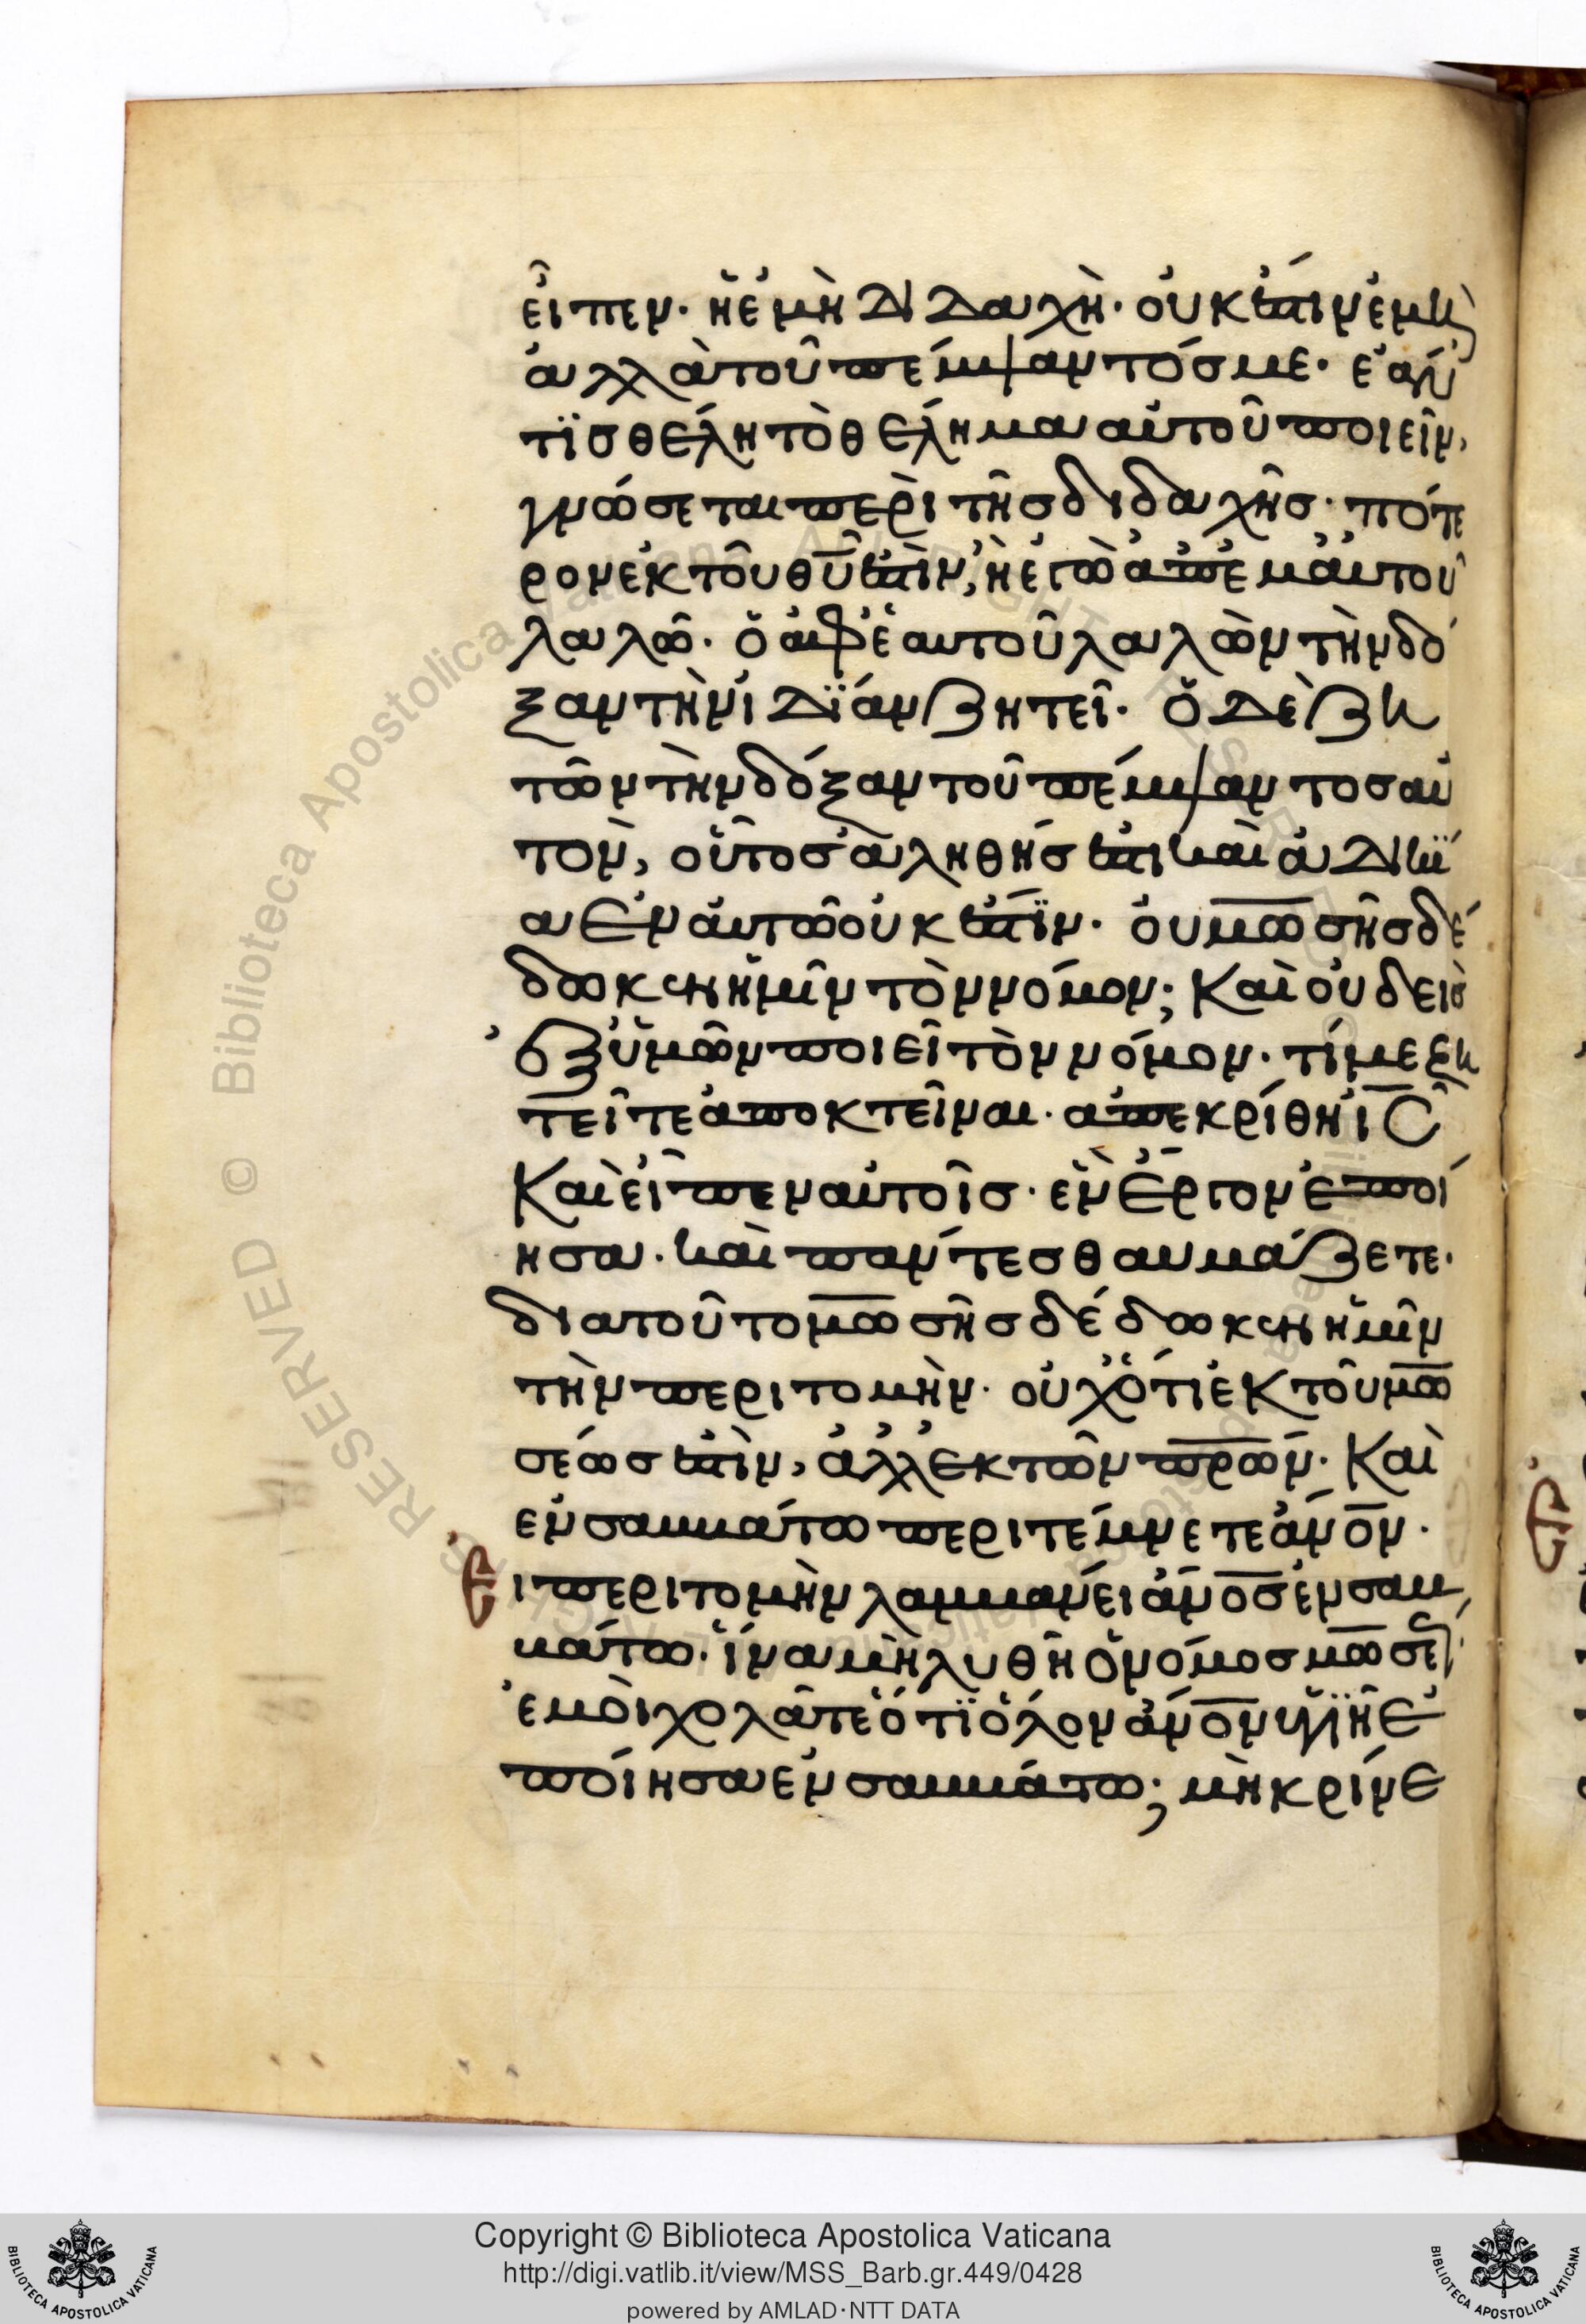 εἶπεν· ἡ ἐμὴ διδαχὴ· οὐκ ἔστιν ἐμὴ,
ἀλλὰ τοῦ πέμψαντός με· ἐάν
τϊσ θέλη τὸ θέλημα αὐτοῦ ποιεῖν,
γνώσεται περὶ τῆσ διδαχῆσ· πότε
ρον ἐκ τοῦ θῡ ἐστὶν, ἢ ἐγὼ ἀπ' ἐμαυτοῦ
λαλῶ· ὁ ἀφ' ἑαυτοῦ λαλῶν τὴν δό
ξαν τὴν ἰδϊάν ζητεῖ· ὁ δὲ ζη
τῶν τὴν δόξαν τοῦ πέμψαντοσ αὐ
τὸν, οὗτοσ ἀληθήσ ἐστι καὶ ἀδικϊ
α ἐν αὐτῶ οὐκ ἔστϊν· οὐ μω̄σῆσ δέ
δωκεν ἡμῖν τὸν νόμον; Καὶ οὐδεὶσ
ἐξ ὑμῶν ποιεῖ τὸν νόμον· τί με ζη
τεῖτε ἀποκτεῖναι· ἀπεκρίθη ῑσ̄
Καὶ εἶπεν αὐτοῖσ· ἓν ἔργον ἐποί
ησα· καὶ πάντεσ θαυμάζετε·
διατοῦτο μω̄σῆσ δέδωκεν ἡμῖν
τὴν περιτομὴν· οὐχ' ὅτι ἐκ τοῦ μω̄
σέωσ ἐστὶν, ἀλλ' ἐκ τῶν π̄ρ̄ων· Καὶ
ἐν σαββάτω περιτέμνετε ἄν̄ο̄ν·
ι περιτομὴν λαμβάνει ἄν̄ο̄σ ἐν σαβ
βάτω· ἵνα μὴ λυθῆ ὁ νόμοσ μω̄σέ·
ἐμοὶ χολᾶτε ὅτϊ ὅλον ἄν̄ο̄ν ὑγϊῆ ἐ
ποίησα ἐν σαββάτω; μὴ κρίνε
RESERVED © Biblioteca Apostolica Vaticana
Copyright © Biblioteca Apostolica Vaticana
http://digi.vatlib.it/view/MSS_Barb.gr.449/0428
powered by AMLAD·NTT DATA
BIBLIOTECA APOSTOLICA VATICANA
BIBLIOTECA APOSTOLICA VATICANA